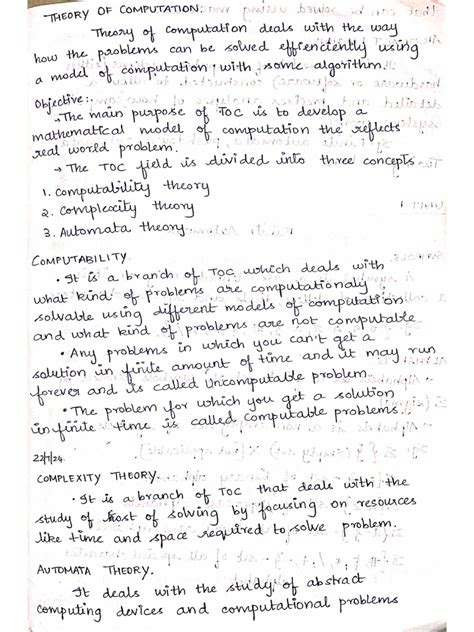 THEORY OF COMPUTATION:
Theory of computation deals with the way
how the problems can be solved effienciently using
a model of computation with some algorithm.
Objective:-
→The main purpose of TOC is to develop a
mathematical model of computation the reflects
real world problem.
→ The TOC field is divided into three concepts
1. Computability theory
2. Complexity theory
3. Automata theory
COMPUTABILITY
• It is a branch of TOC which deals with
what kind of problems are computationaly
solvable using different models of computation
and what kind of problems are not computable
• Any problems in which you can't get a
solution in finite amount of time and it may run
forever and is called Uncomputable problem
• The problem for which you get a solution
in finite time is called computable problems.
22/7/24
COMPLEXITY THEORY.
• It is a branch of TOC that deals with the
study of host of solving by focusing on resources
like time and space required to solve problem.
AUTOMATA THEORY.
It deals with the study of abstract
computing devices and computational problems